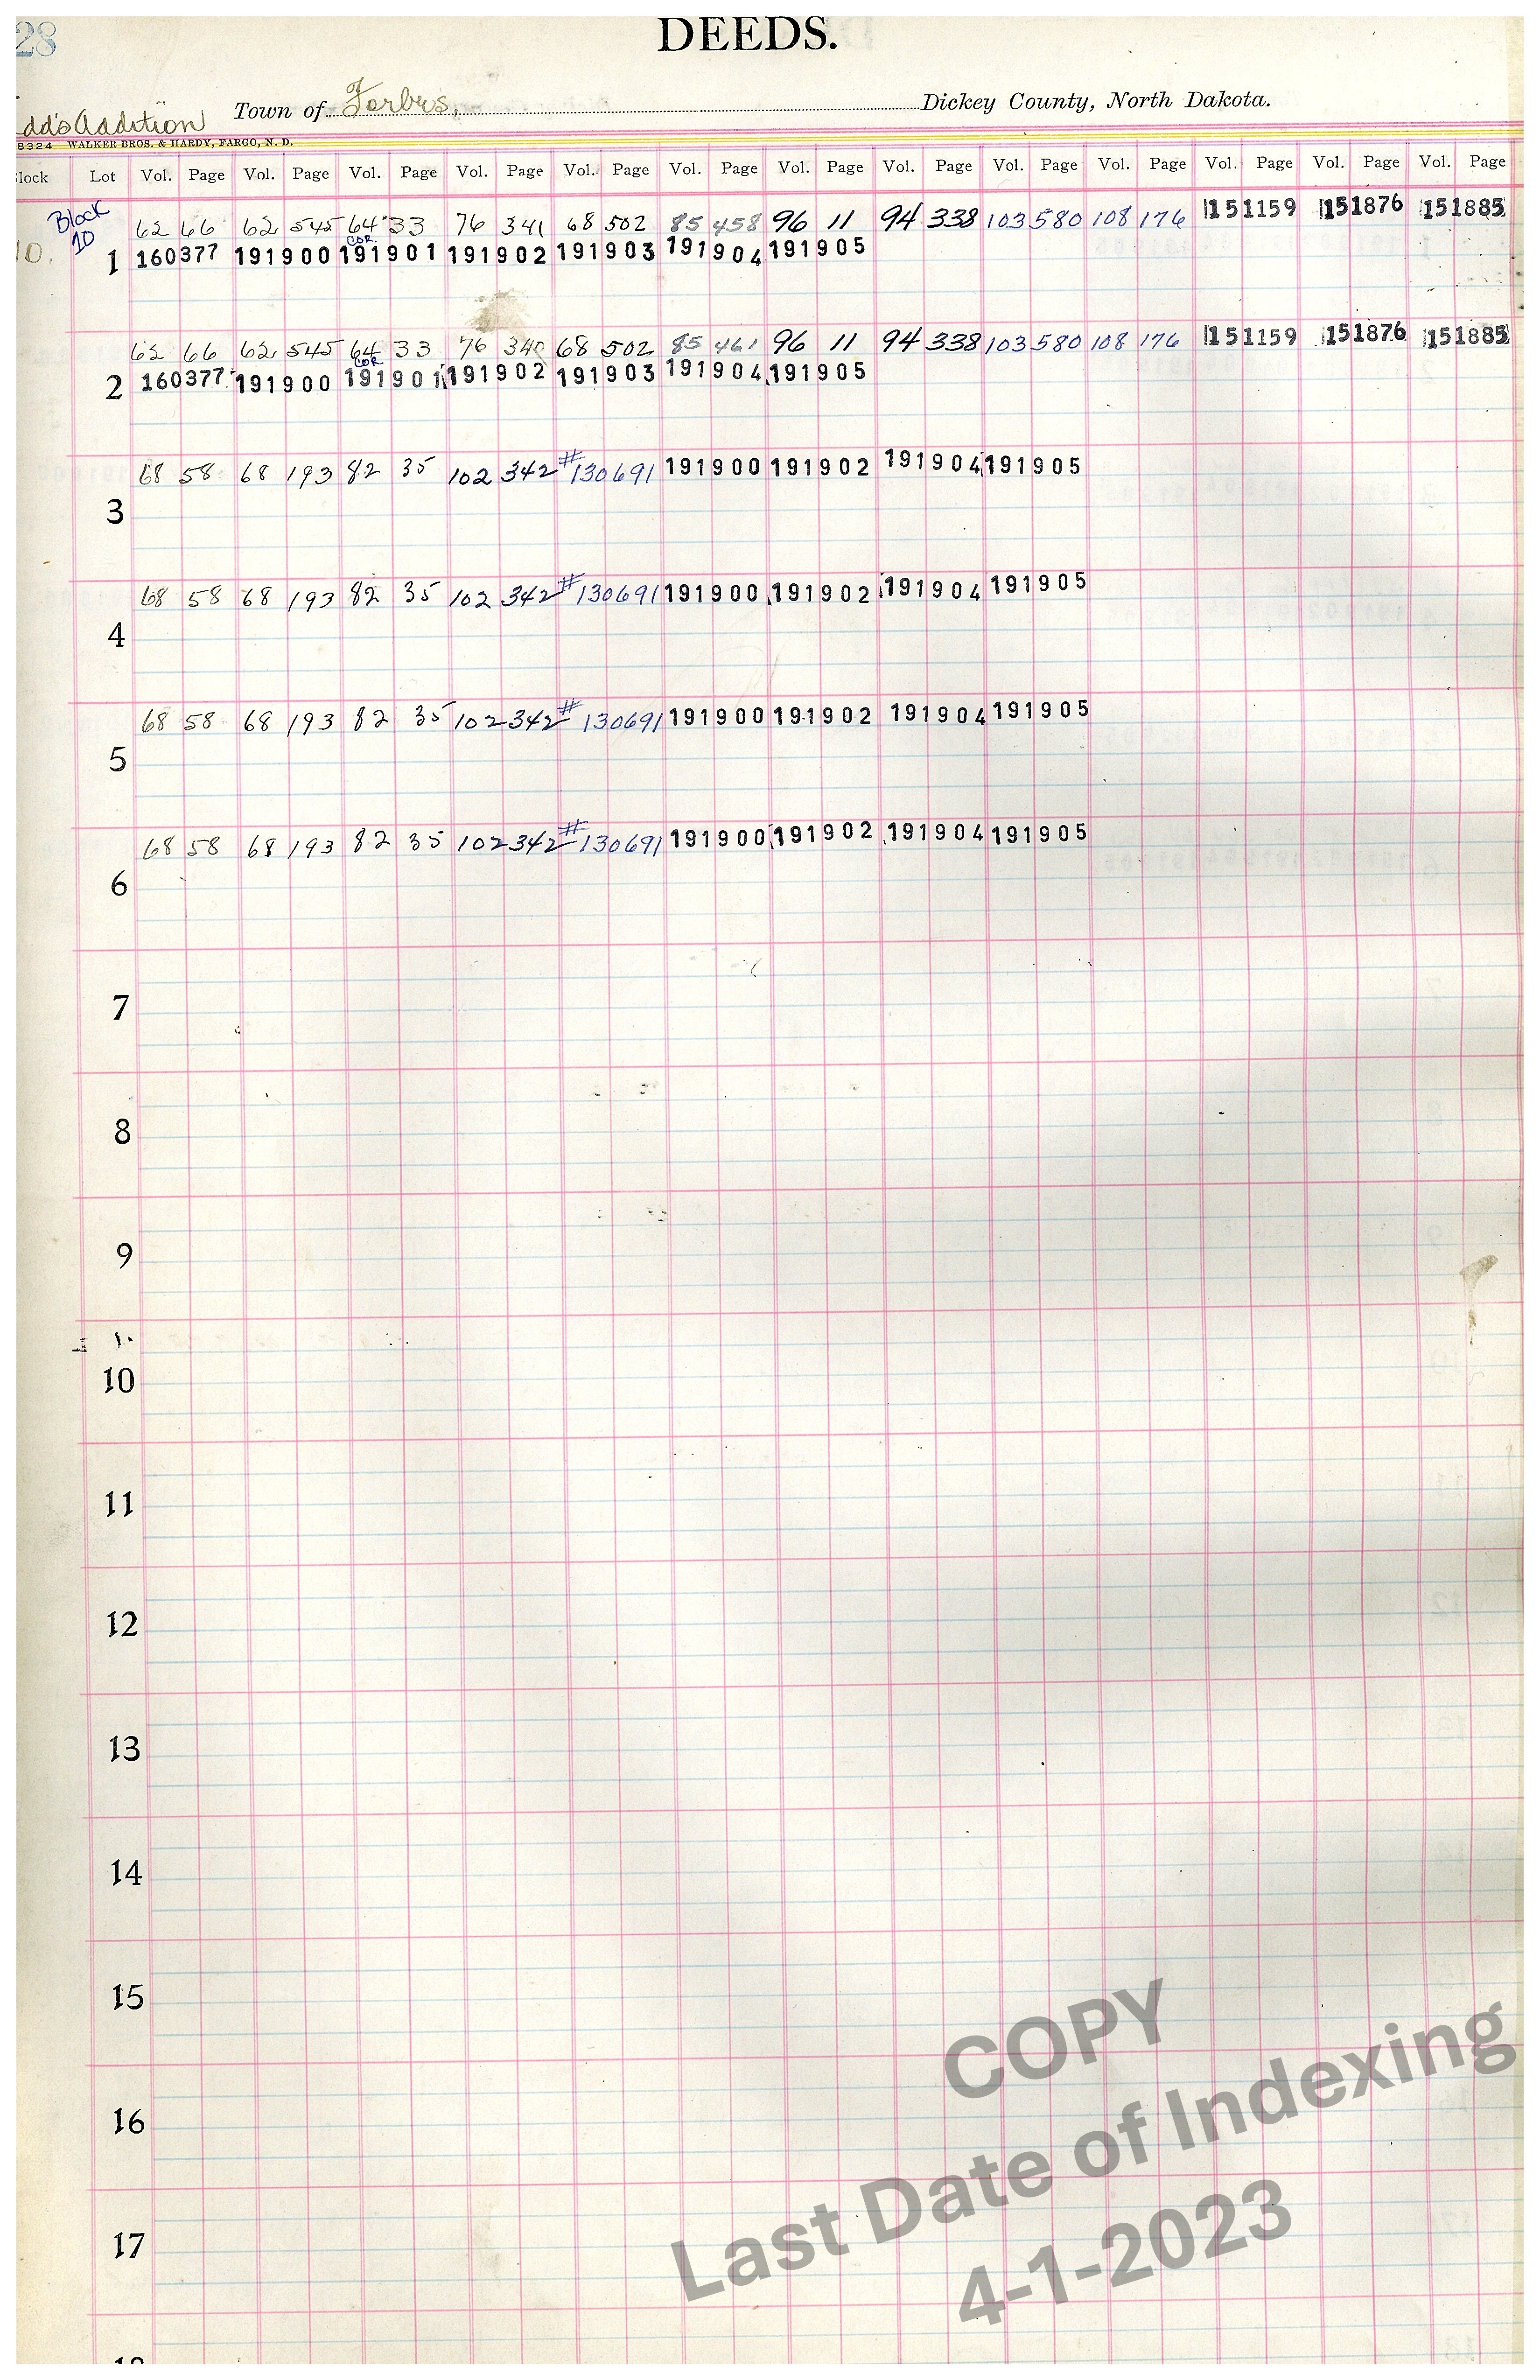 28
DEEDS.
dd's Addition Town of Forbes, Dickey County, North Dakota.
8324 WALKER BROS. & HARDY, FARGO, N. D.
lock Lot Vol. Page Vol. Page Vol. Page Vol. Page Vol. Page Vol. Page Vol. Page Vol. Page Vol. Page Vol. Page Vol. Page Vol. Page Vol. Page
Block 10
62 66 62 545 64 33 76 341 68 502 85 458 96 11 94 338 103 580 108 176 151159 151876 151885
COR.
10. 1 160377 191900 191901 191902 191903 191904 191905
62 66 62 545 64 33 76 340 68 502 85 461 96 11 94 338 103 580 108 176 151159 151876 151885
COR
2 160377 191900 191901 191902 191903 191904 191905
68 58 68 193 82 35 102 342 #130691 191900 191902 191904 191905
3
68 58 68 193 82 35 102 342 #130691 191900 191902 191904 191905
4
68 58 68 193 82 35 102 342 #130691 191900 191902 191904 191905
5
68 58 68 193 82 35 102 342 #130691 191900 191902 191904 191905
6
7
8
9
10
11
12
13
14
15
16
17
COPY
Last Date of Indexing
4-1-2023